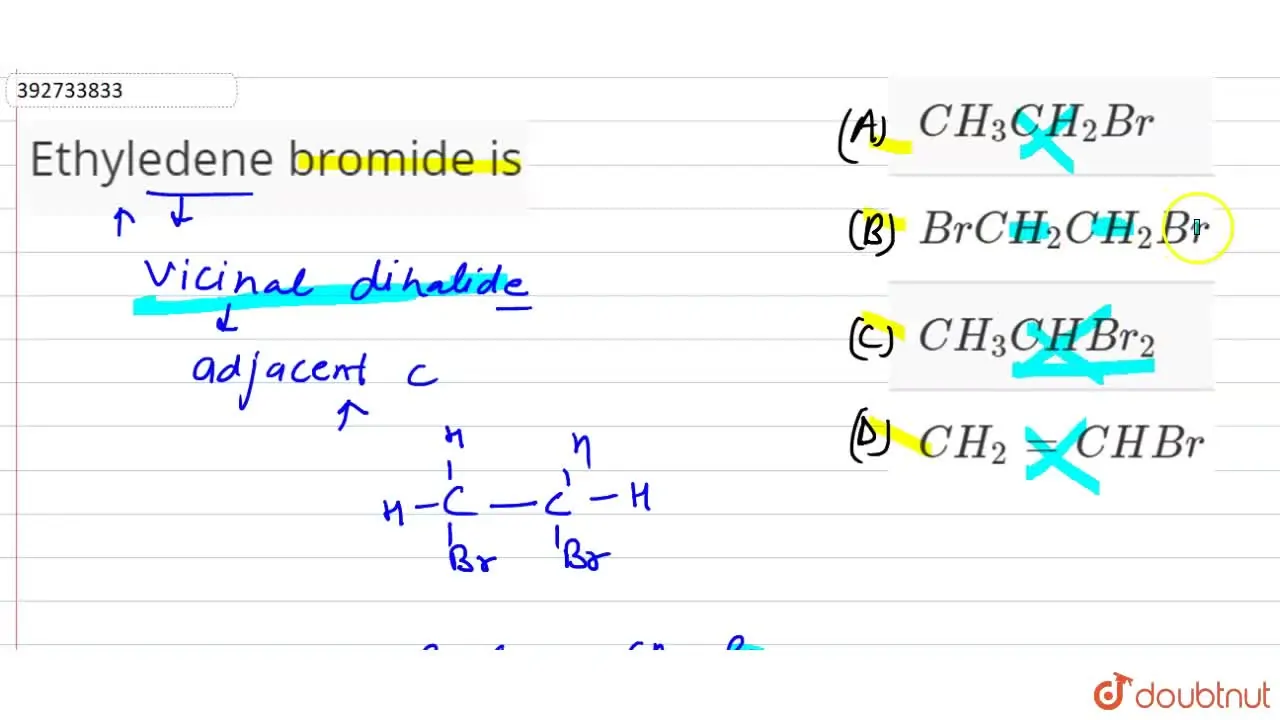 392733833
Ethyledene bromide is
Vicinal dihalide
adjacent C
H H
H - C - C - H
Br Br
(A) CH₃CH₂Br
(B) BrCH₂CH₂Br
(C) CH₃CHBr₂
(D) CH₂ = CHBr
doubtnut